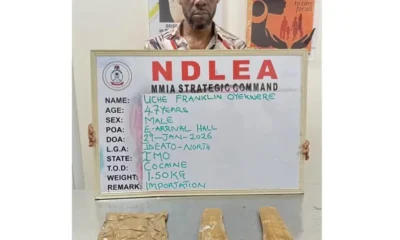 NDLEA
MMIA STRATEGIC COMMAND
NAME: UCHE FRANKLIN OYEKWERE
AGE: 47YEARS
SEX: MALE
POA: E-ARRIVAL HALL
DOA: 29-JAN-2026
L.G.A: IDEATO-NORTH
STATE: IMO
T.O.D: COCAINE
WEIGHT: 1.50KG
REMARK: IMPORTATION